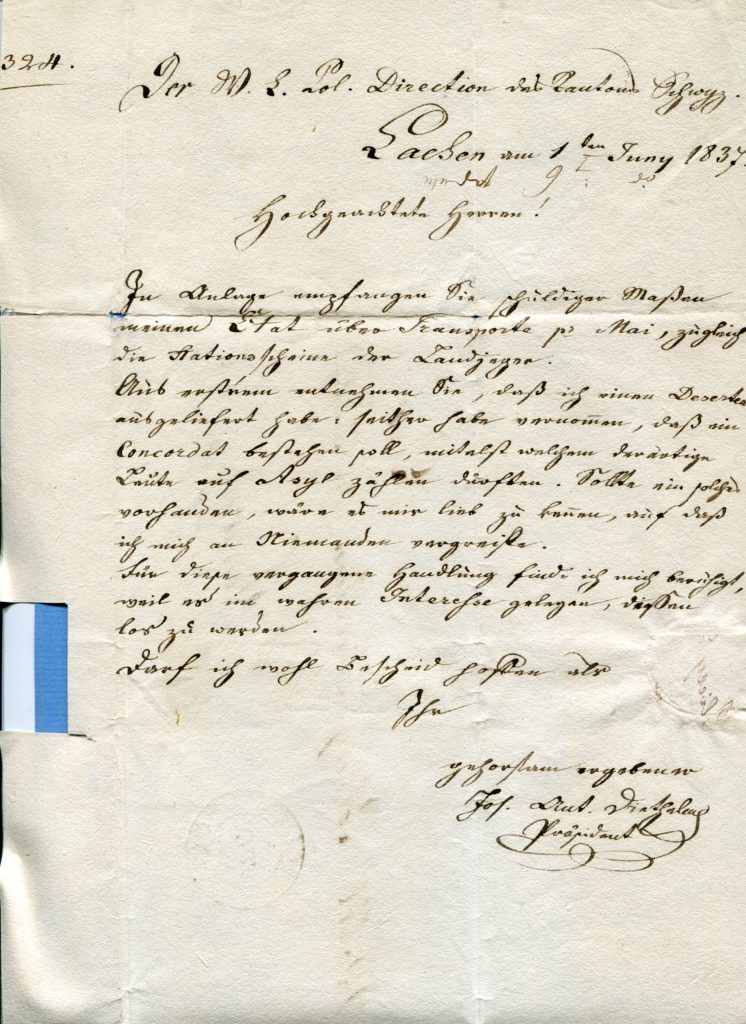 324.
Der W. L. Pol. Direction des Kantons Schwyz.
Lachen am 1ten Juny 1837.
9
Hochgeachtete Herren!
In Anlage empfangen Sie schuldiger Maßen
meinen Etat über Transporte pr Mai, zugleich
die Stationsscheine der Landjeger.
Aus erstrem entnehmen Sie, daß ich einen Deserteu
ausgeliefert habe: seither habe vernommen, daß ein
Concordat bestehen soll, mitelst welchem derartige
Leute auf Asyl zählen dürften. Sollte ein solches
vorhanden, wäre es mir lieb zu kennen, auf daß
ich mich an Niemanden vergreiffe.
Für diese vergangene Handlung finde ich mich beruhigt,
weil es im wahren Interesse gelegen, dessen
los zu werden.
Darf ich wohl Bescheid hoffen als
Ihr
gehorsam ergebener
Jos. Ant. Diethelm
Präsident